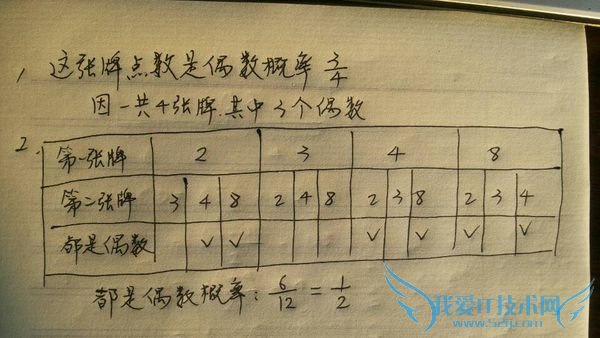 1, 这张牌点数是偶数概率 3/4
因一共4张牌.其中3个偶数
2.
第一张牌 2 3 4 8
第二张牌 3 4 8 2 4 8 2 3 8 2 3 4
都是偶数 ∨ ∨ ∨ ∨ ∨ ∨
都是偶数概率: 6/12 = 1/2
我爱IT技术网
www.52ij.com